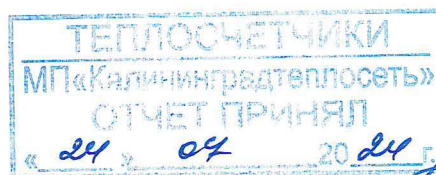 ТЕПЛОСЧЕТЧИКИ
МП«Калининградтеплосеть»
ОТЧЕТ ПРИНЯЛ
« 24 » 07 20 24 г.